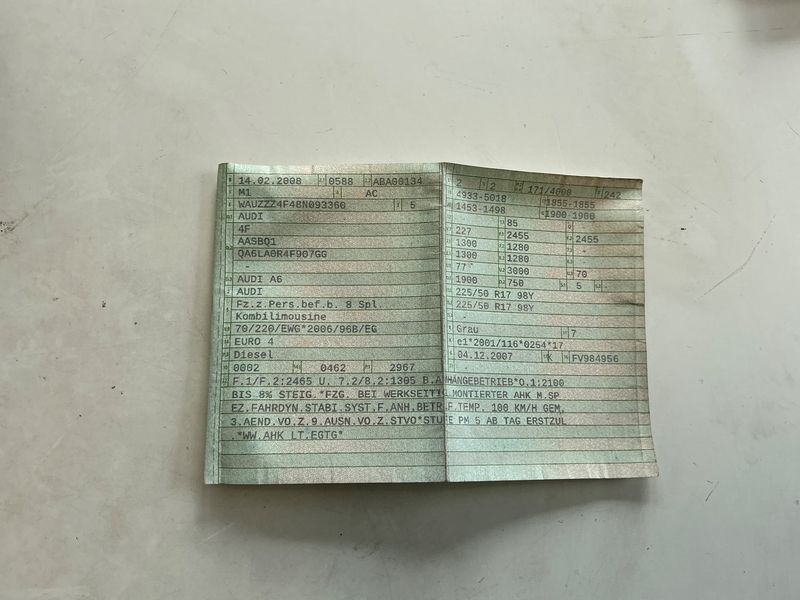 14.02.2008 0588 ABA00134
M1 AC
WAUZZZ4F48N093360 5
AUDI
4F
AASBQ1
QA6LA0R4F907GG
-
AUDI A6
AUDI
Fz.z.Pers.bef.b. 8 Spl.
Kombilimousine
70/220/EWG*2006/96B/EG
EURO 4
Diesel
0002 0462 2967
2 2 171/4000 242
4933-5018 1855-1855
1453-1498 1900-1980
85
227 2455 2455
1300 1280 -
1300 1280 -
77 3000 70
1900 750 5 -
225/50 R17 98Y
225/50 R17 98Y
-
Grau 7
e1*2001/116*0254*17
04.12.2007 K FV984956
F.1/F.2:2465 U. 7.2/8.2:1305 B.ANHANGEBETRIEB*O.1:2100
BIS 8% STEIG.*FZG. BEI WERKSEITIG MONTIERTER AHK M.SP
EZ.FAHRDYN.STABI.SYST.F.ANH.BETR.F.TEMP. 100 KM/H GEM.
3.AEND.VO.Z.9.AUSN.VO.Z.STVO*STUFE PM 5 AB TAG ERSTZUL
.*WW.AHK LT.EGTG*